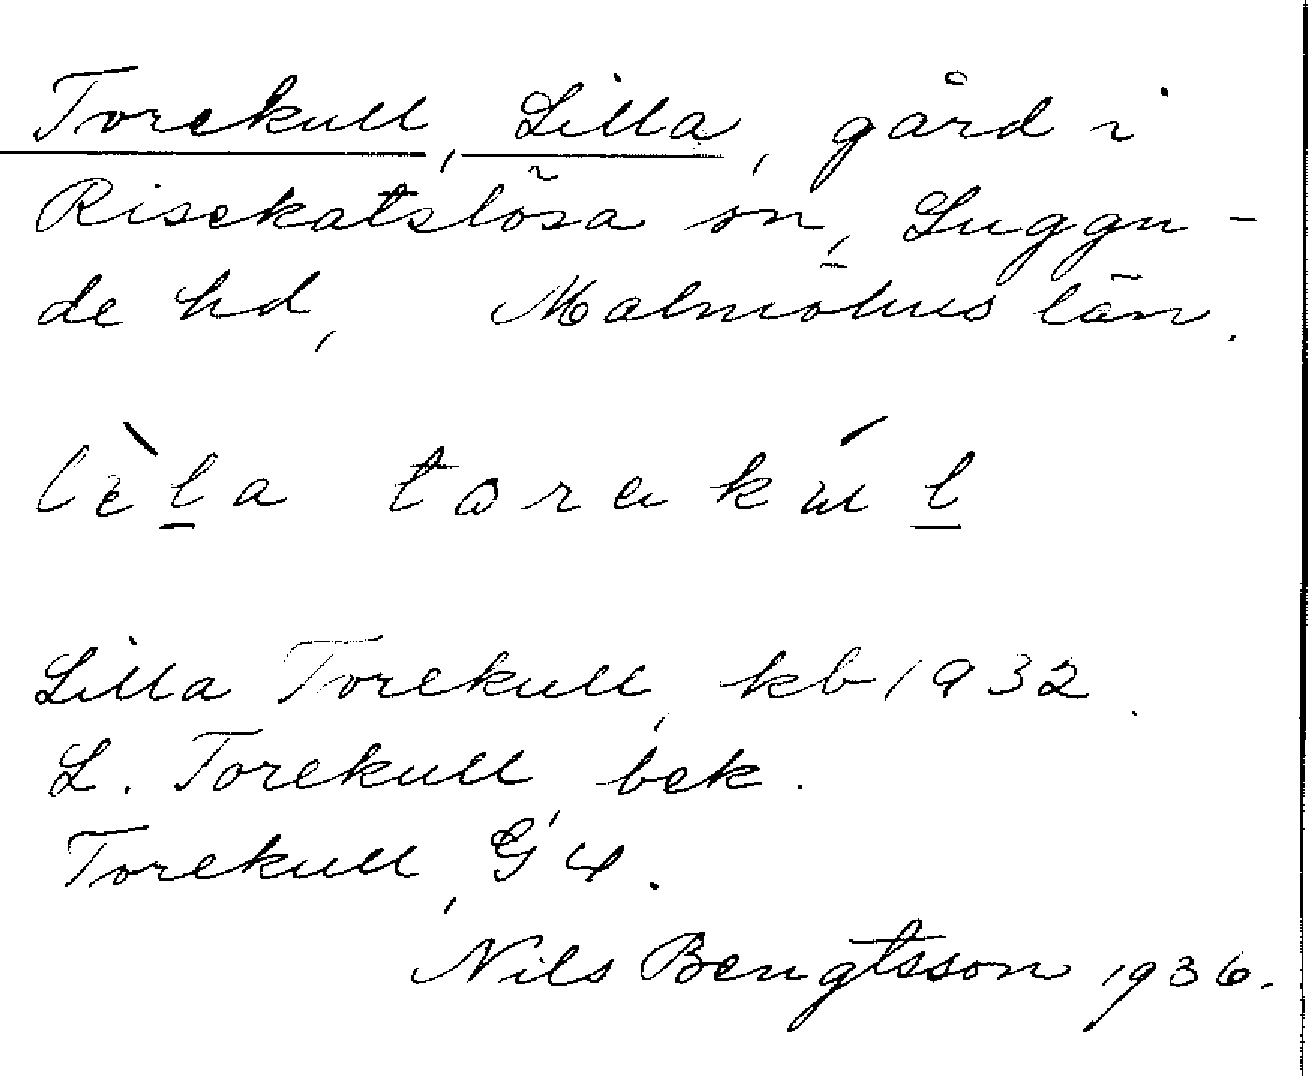 Torekull, Lilla, gård i
Risekatslösa sn, Luggu-
de hd, Malmöhus län.
lèla torakúl
Lilla Torekull, kb 1932.
L. Torekull, bek.
Torekull, G 4.
Nils Bengtsson 1936.